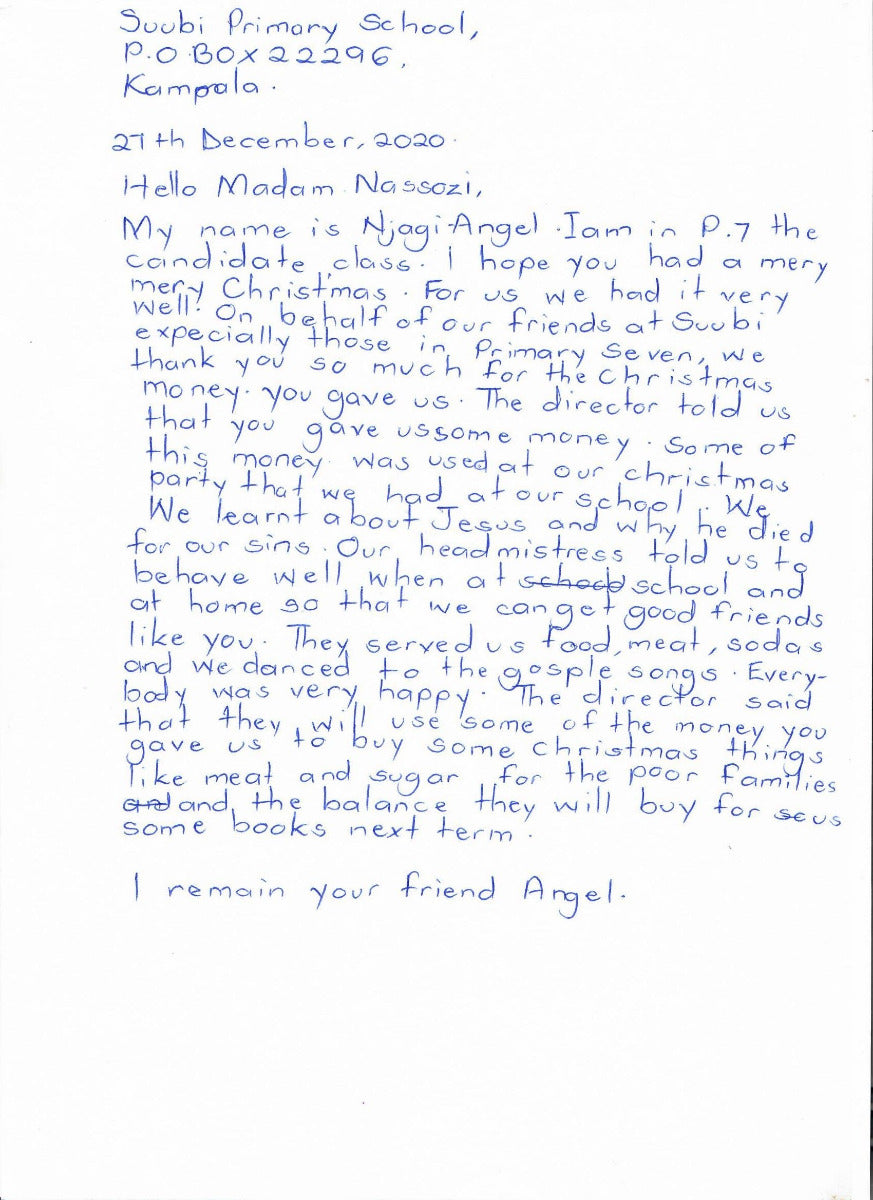 Suubi Primary School,
P.O BOX 22296,
Kampala.
27th December, 2020.
Hello Madam Nassozi,
My name is Njagi Angel. Iam in P.7 the
candidate class. I hope you had a mery
mery Christmas. For us we had it very
well. On behalf of our friends at Suubi
expecially those in Primary Seven, we
thank you so much for the Christmas
money. you gave us. The director told us
that you gave ussome money. Some of
this money was used at our christmas
party that we had at our school. We
We learnt about Jesus and why he died
for our sins. Our headmistress told us to
behave well when at school school and
at home so that we canget good friends
like you. They served us food, meat, sodas
and we danced to the gosple songs. Every-
body was very happy. The director said
that they will use some of the money you
gave us to buy some christmas things
like meat and sugar for the poor families
and and the balance they will buy for us
some books next term.
I remain your friend Angel.